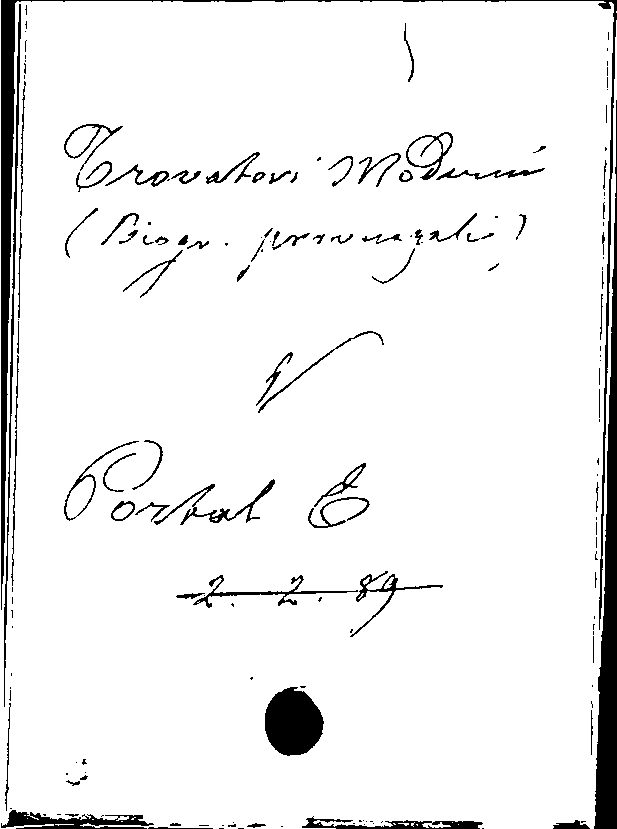 Trovatori Moderni
(Biogr. provenzali)
V
Portal E
2. 2. 89